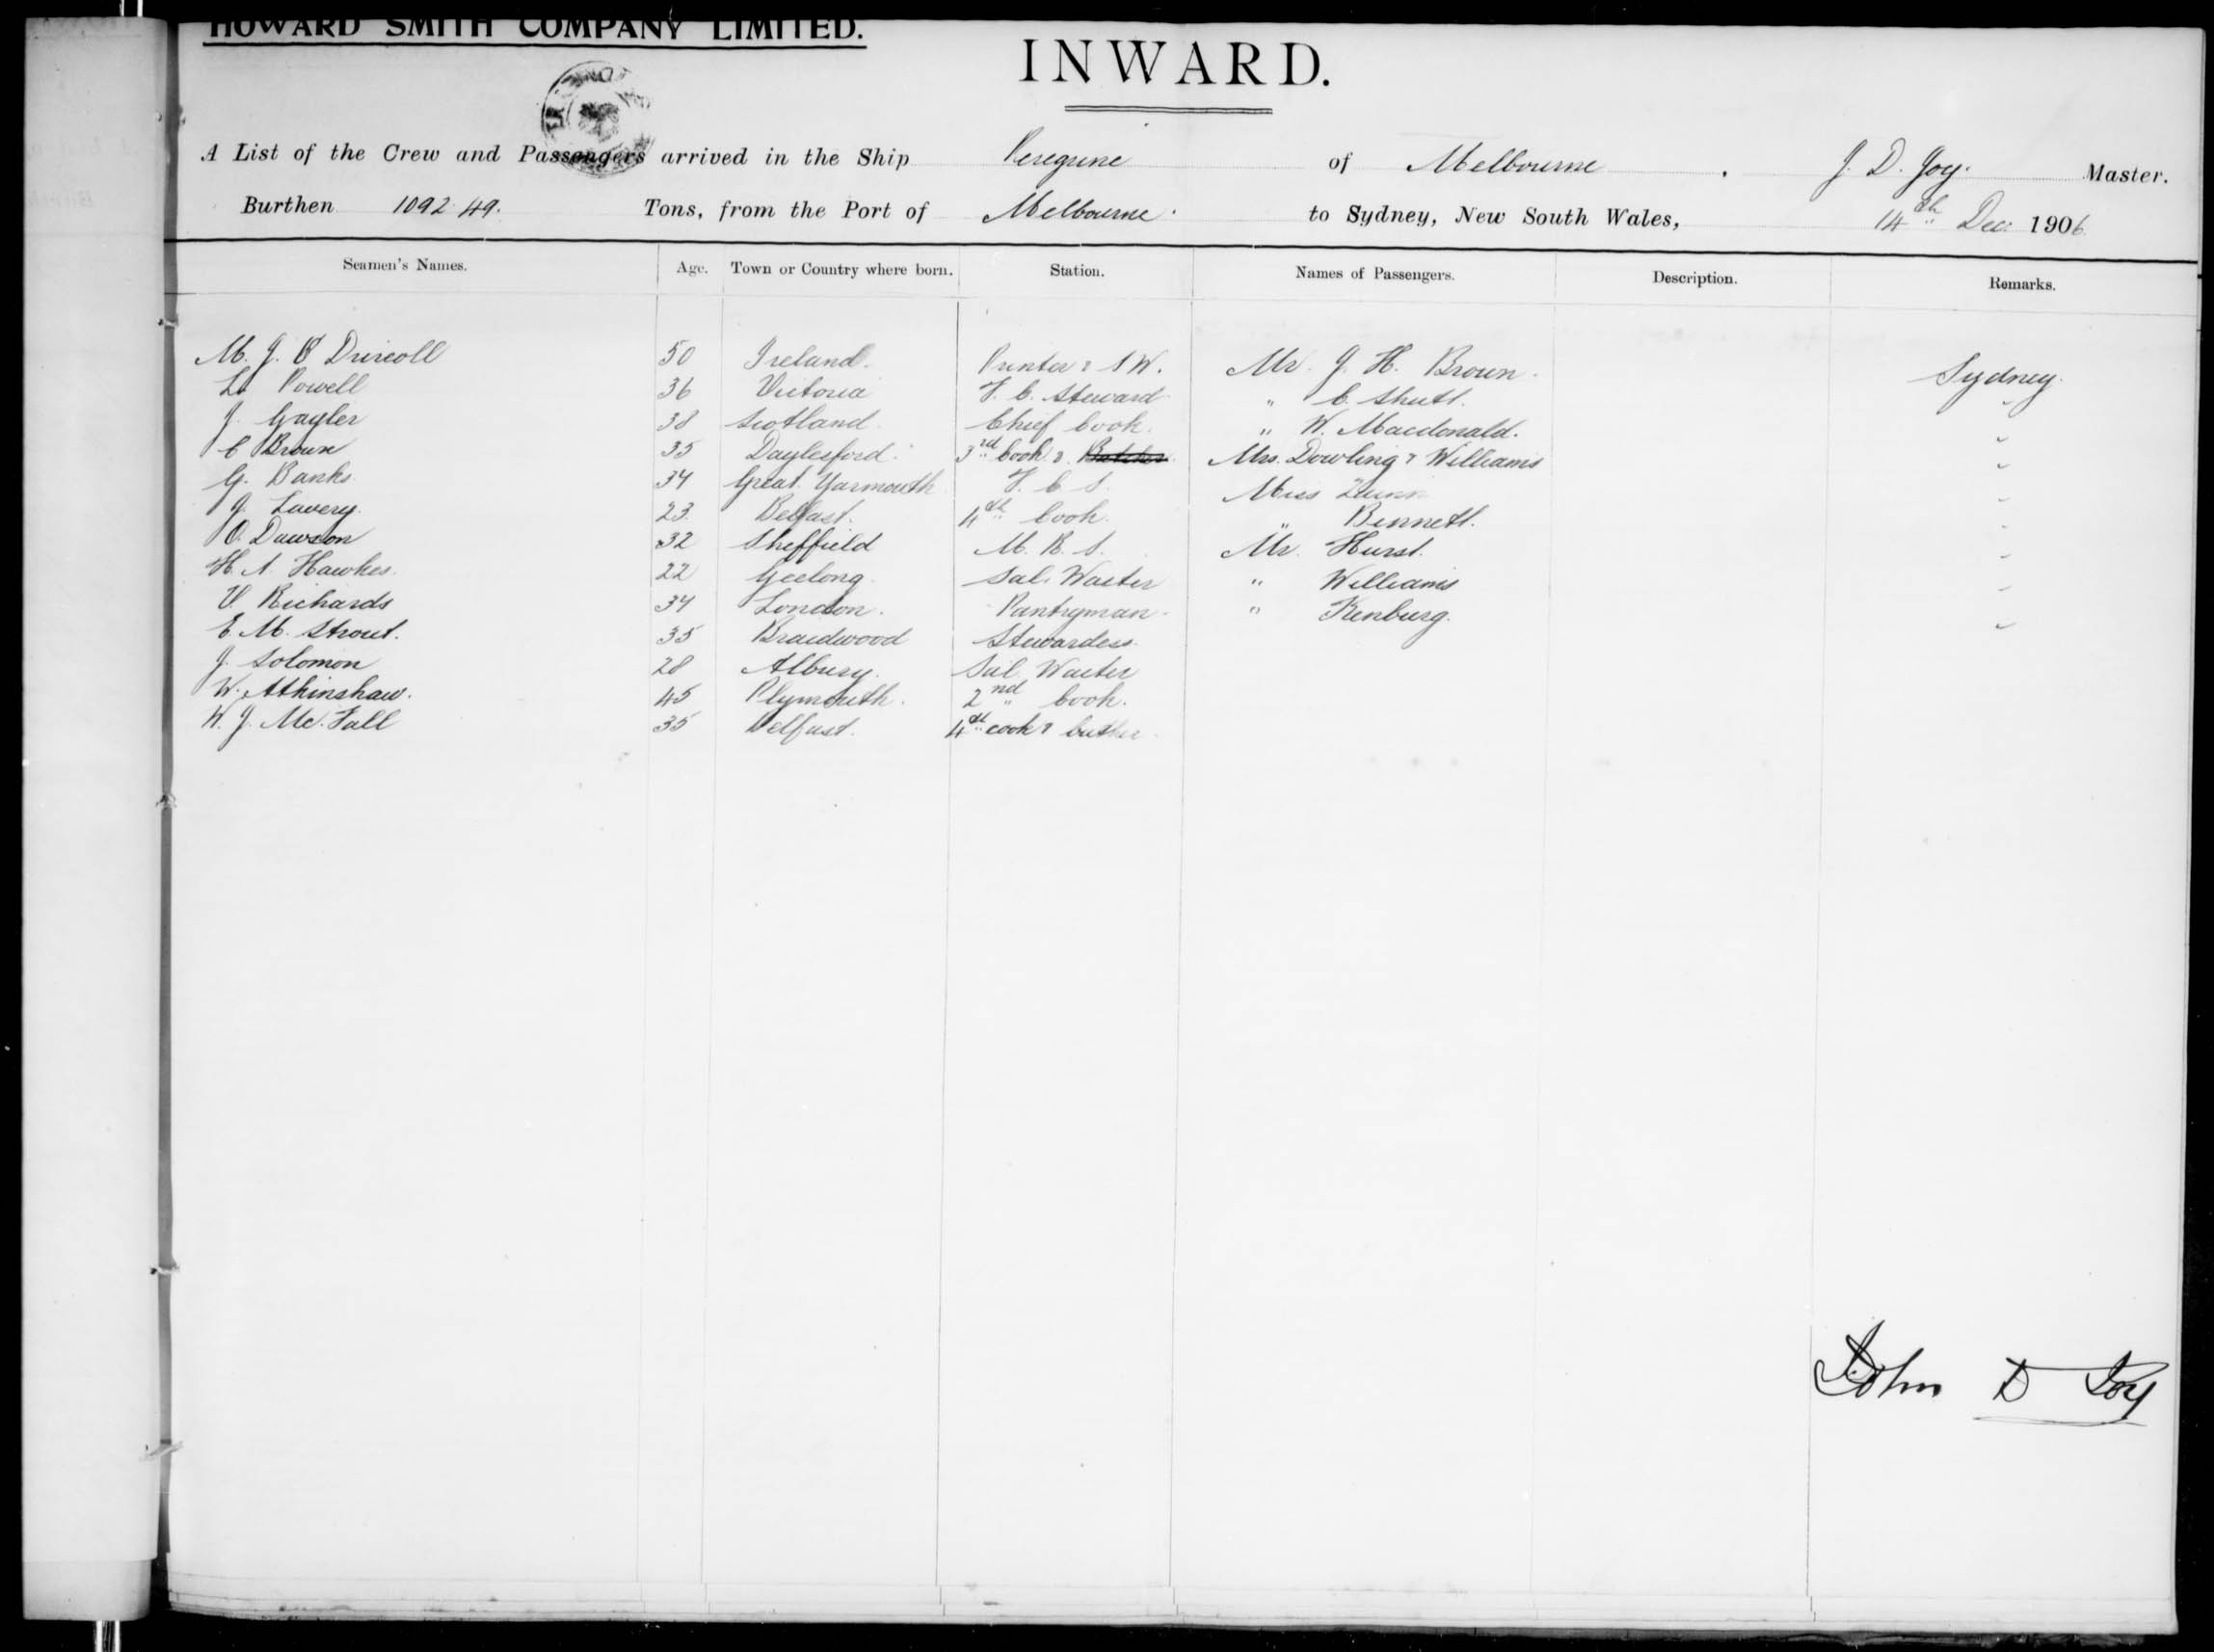 HOWARD SMITH COMPANY LIMITED.
INWARD.
A List of the Crew and Passengers arrived in the Ship Peregrine of Melbourne, J. D. Joy. Master.
Burthen 1092.49. Tons, from the Port of Melbourne. to Sydney, New South Wales, 14th Dec. 1906
Seamen's Names. Age. Town or Country where born. Station. Names of Passengers. Description. Remarks.
M. J. O'Driscoll 50 Ireland. Printer & S.W. Mr. J. H. Brown. Sydney.
Powell 36 Victoria F. C. Steward " C. Shutt. "
J. Gayler 38 Scotland. Chief Cook. " W. Macdonald. "
C Brown 35 Daylesford. 3rd Cook & Butcher Mrs. Dowling & Williams "
G. Banks 34 Great Yarmouth F. C. S. Miss "
J. Lavery. 23 Belfast. 4th Cook. " Bennett. "
O. Dawson 32 Sheffield M. R. S. Mr. Hurst. "
H. A. Hawkes. 22 Geelong. Sal. Waiter " Williams "
V. Richards 34 London. Pantryman. " Kenburg. "
E. M. Strout. 35 Braidwood Stewardess.
J. Solomon 28 Albury. Sal. Waiter
W. Atkinshaw. 45 Plymouth. 2nd Cook.
W. J. Mc.Fall 35 Belfast. 4th cook &
John D Joy